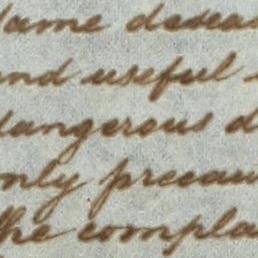 same diseas
and useful
dangerous d
only precau
the compla